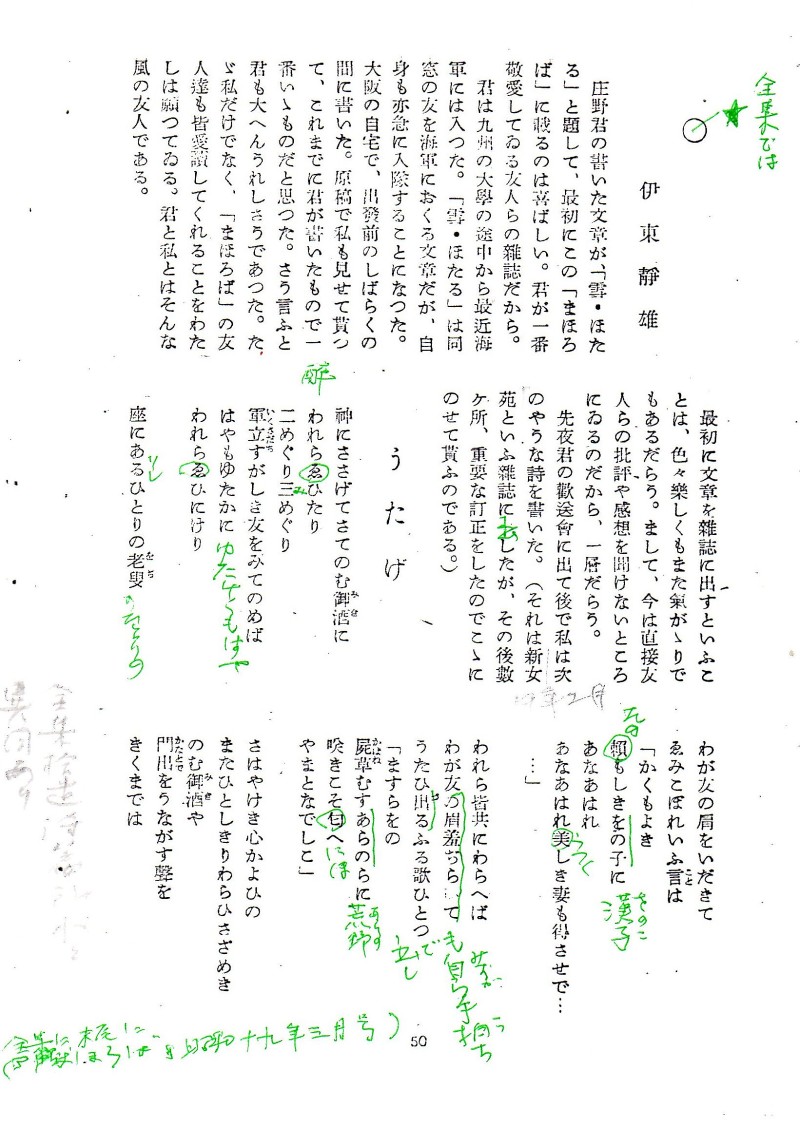 全集では
伊東靜雄
庄野君の書いた文章が、「雲・ほた
る」と題して、最初にこの「まほろ
ば」に載るのは喜ばしい。君が一番
敬愛してゐる友人らの雜誌だから。
君は九州の大學の途中から最近海
軍には入つた。「雲・ほたる」は同
窓の友を海軍におくる文章だが、自
身も亦急に入隊することになつた。
大阪の自宅で、出發前のしばらくの
間に書いた。原稿で私も見せて貰つ
て、これまでに君が書いたもので一
番いゝものだと思つた。さう言ふと
君も大へんうれしさうであつた。た
ゞ私だけでなく、「まほろば」の友
人達も皆愛讀してくれることをわた
しは願つてゐる。君と私とはそんな
風の友人である。
最初に文章を雜誌に出すといふこ
とは、色々樂しくもまた氣がゝりで
もあるだらう。まして、今は直接友
人らの批評や感想を聞けないところ
にゐるのだから、一層だらう。
先夜君の歡送會に出て後で私は次
のやうな詩を書いた。（それは新女
苑といふ雜誌に出したが、その後數
ケ所、重要な訂正をしたのでこゝに
のせて貰ふのである。）
うたげ
神にささげてさてのむ御酒に
みき
われらゑひたり
醉
二めぐり三めぐり
み
軍立すがしき友をみてのめば
いくさだち
はやもゆたかに
ゆたけくもはや
われらゑひにけり
座にあるひとりの老叟
をぢ
わが友の眉をいだきて
ゑみこぼれいふ言は
こと
「かくもよき
賴もしきをの子に
たの
漢子
をのこ
あなあはれ
あなあはれ美しき妻も得させで…
…」
われら皆共にわらへば
わが友の眉羞ぢらひて
うたひ出るふる歌ひとつ
「ますらをの
屍草むすあらのらに
かばね
荒野
咲きこそ匂へ
にほ
やまとなでしこ」
さはやけき心かよひの
またひとしきりわらひさざめき
のむ御酒や
みき
門出をうながす聲を
かどで
きくまでは
昭和十九年三月号）
50